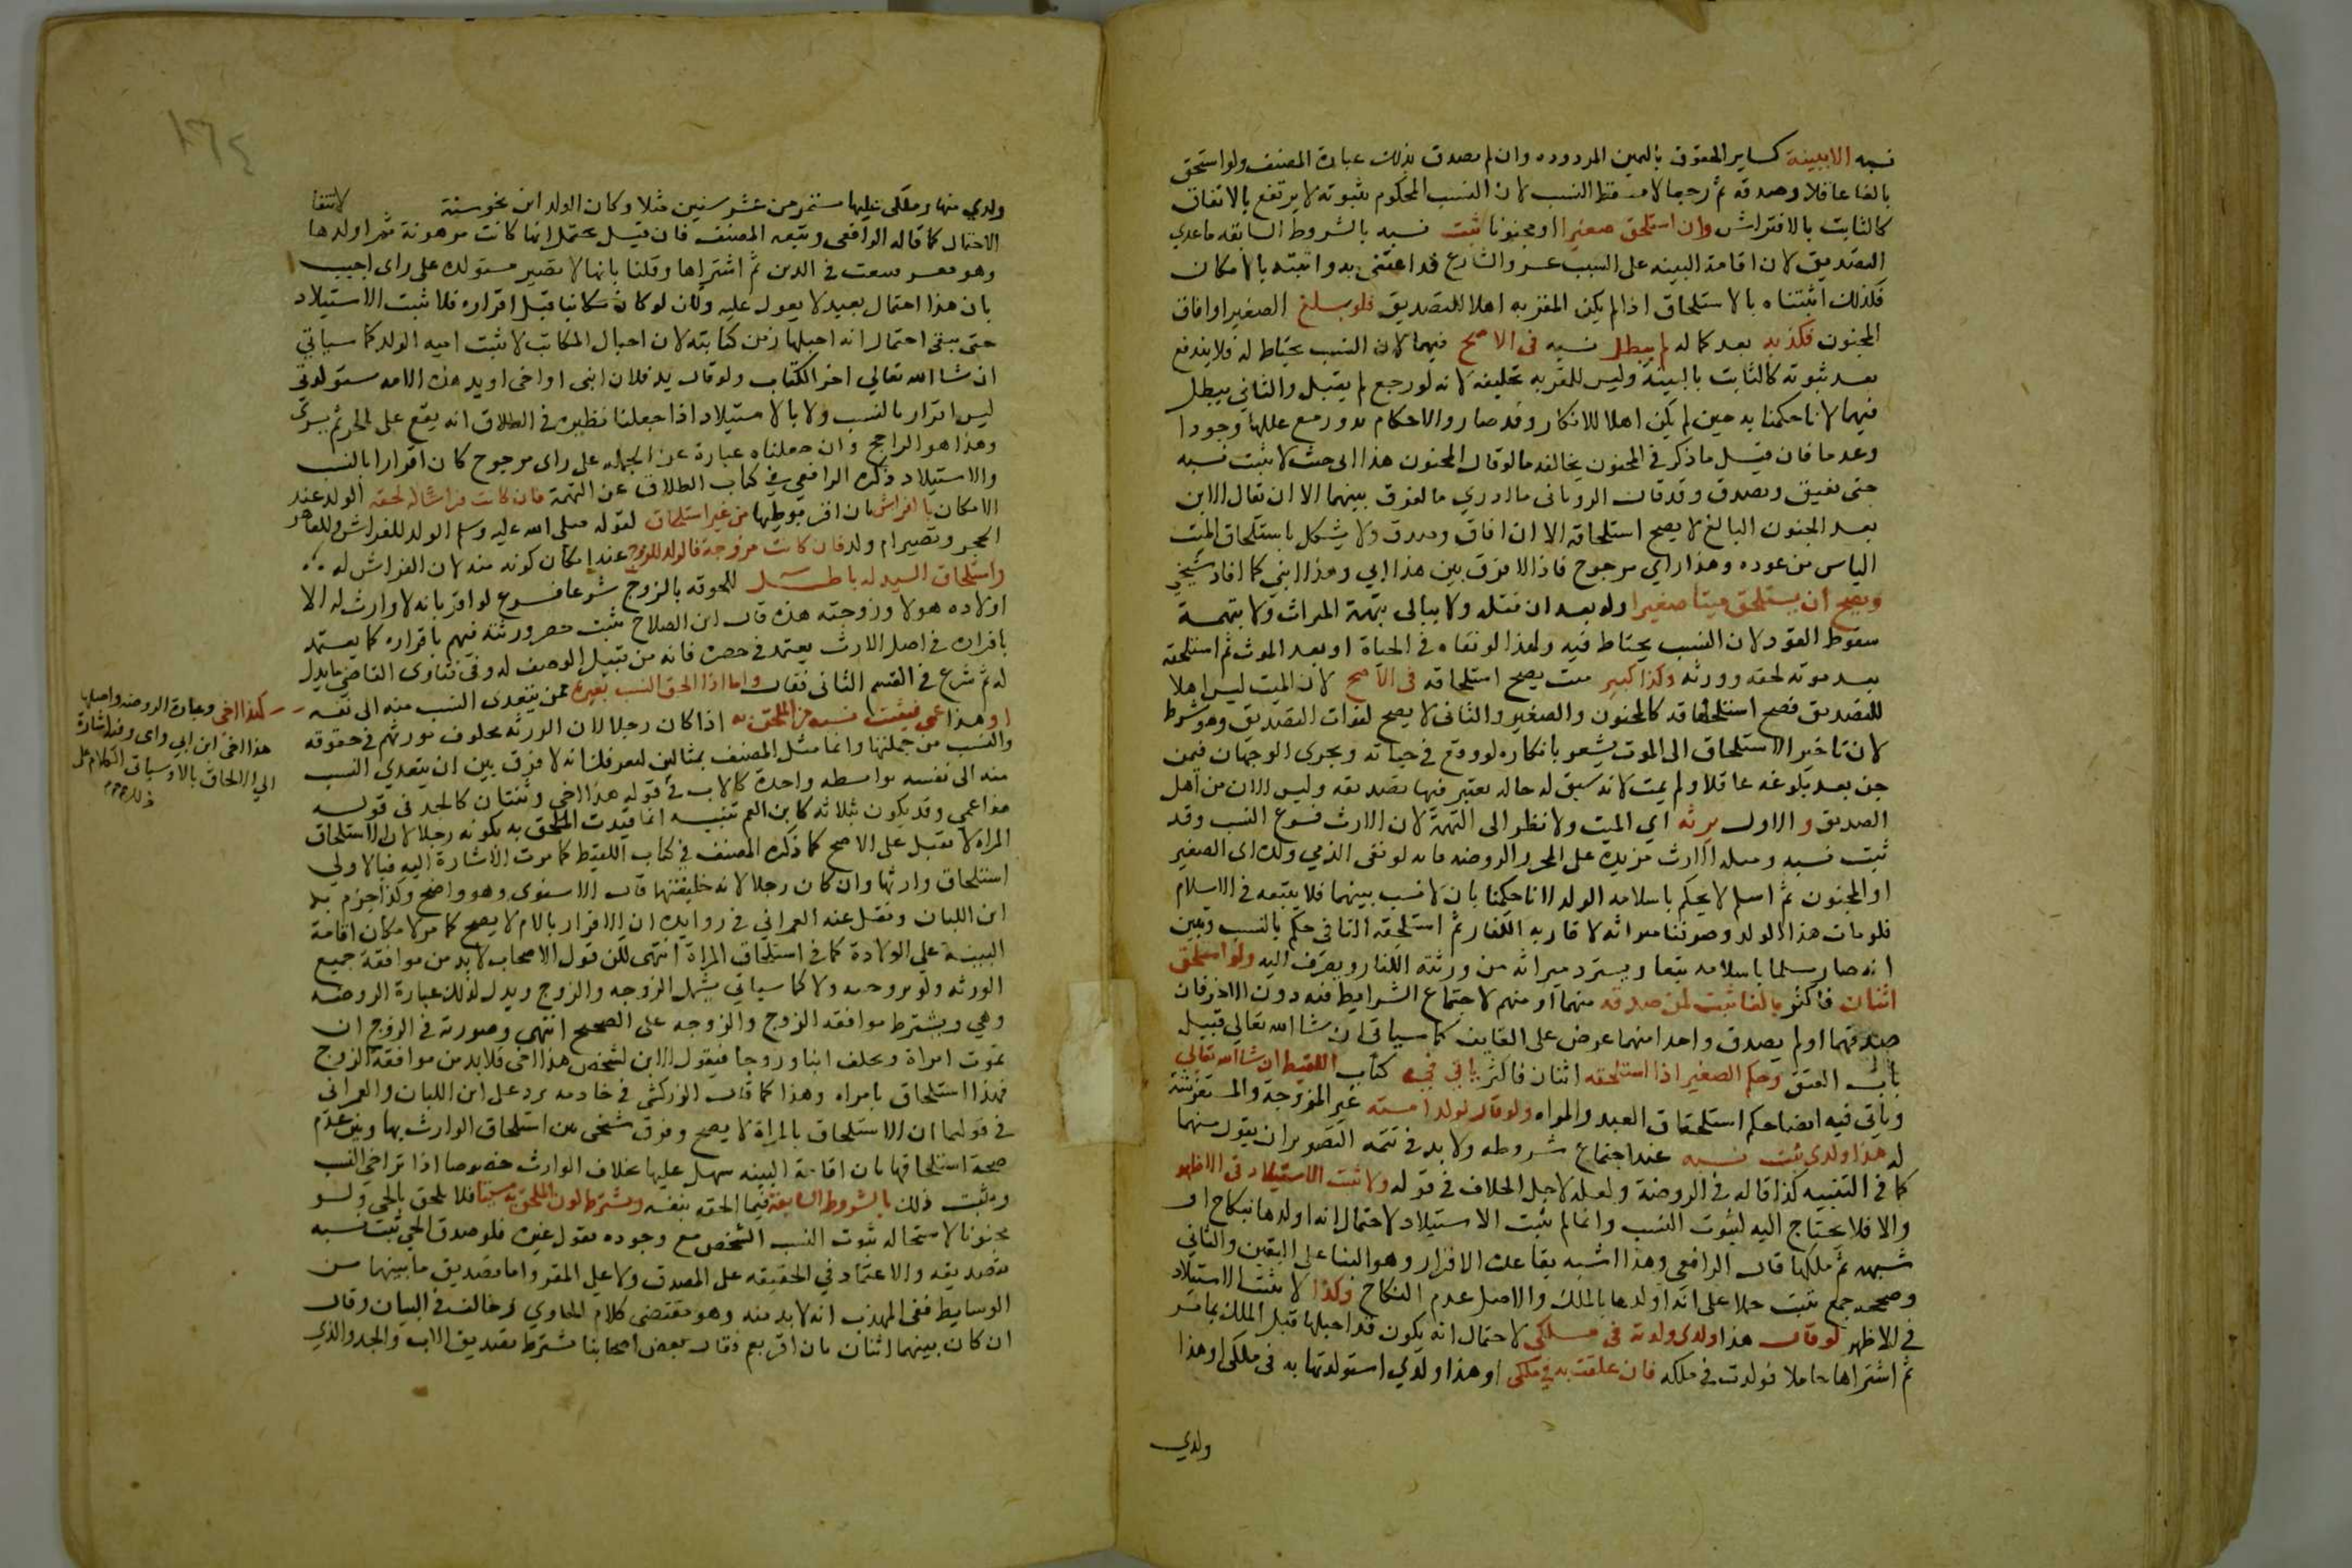 نسبه الا ببينة كساير الحقوق باليمين المردوده وان لم يصدق بذلك عبارة المصنف ولو استحق
بالغا عاقلا وصدقه ثم رجعا لا يسقط النسب لان النسب المحكوم بثبوته لا يرتفع بالاتفاق
كالثابت بالافتراش وان استلحق صغيرا او مجنونا ثبت نسبه بالشروط السابقه ماعدي
التصديق لان اقامة البينه على النسب عسر والشارع قد اعتنى به واثبته بالامكان
فلذلك اثبتناه بالاستلحاق اذا لم يكن المقر به اهلا للتصديق فلو بلغ الصغير او افاق
المجنون فكذبه بعد كماله لم يبطل نسبه في الاصح فيهما لان النسب يحتاط له فلا يندفع
بعد ثبوته كالثابت بالبينة وليس للمقر به تحليفه لانه لو رجع لم يقبل والثاني يبطل
فيهما لانا حكمنا به حين لم يكن اهلا للانكار وقد صار والاحكام تدور مع عللها وجودا
وعدما فان قيل ما ذكر في المجنون يخالفه ما لو قال المجنون هذا ابي حيث لا يثبت نسبه
حتى يفيق ويصدق وقد قال الروياني ما ادري ما الفرق بينهما الا ان يقال الابن
بعد الجنون البالغ لا يصح استلحاقه الا ان افاق وصدق ولا يشكل باستلحاق الميت
الياس من عوده وهذا راي مرجوح فاذا لا فرق بين هذا ابي وهذا ابني كما افاد شيخي
ويصح ان يستلحق ميتا صغيرا ولو بعد ان قتله ولا يبالى بتهمة الميراث ولا بتهمة
سقوط القود لان النسب يحتاط فيه ولهذا لو نفاه في الحياة او بعد الموت ثم استلحقه
بعد موته لحقه وورثه وكذا كبير ميت يصح استلحاقه في الاصح لان الميت ليس اهلا
للتصديق فصح استلحاقه كالمجنون والصغير والثاني لا يصح لفوات التصديق وهو شرط
لان تاخير الاستلحاق الى الموت يشعر بانكاره لو وقع في حياته ويجرى الوجهان فيمن
جن بعد بلوغه عاقلا ولم يمت لانه سبق له حاله يعتبر فيها تصديقه وليس الان من اهل
الصديق والاول يرثه اي الميت ولا نظر الى التهمة لان الارث فرع النسب وقد
ثبت نسبه ومسله الارث مزيده على المحرر الروضه فانه لو نفى الذمي ولده اى الصغير
او المجنون ثم اسلم لا يحكم باسلامه الولد لانا حكمنا بان لا نسب بينهما فلا يتبعه في الاسلام
فلو مات هذا الولد وصرفنا ميراثه لاقاربه الكفار ثم استلحقه النافي حكم بالنسب وتبين
انه صار مسلما باسلامه تبعا ويسترد ميراثه من ورثته الكفار ويصرف اليه ولو استلحق
اثنان فاكثر بالغا ثبت لمن صدقه منهما او منهم لاجتماع الشرايط فيه دون الاخر فان
صدقهما او لم يصدق واحدا منهما عرض على القايف كما سياتى ان شا الله تعالى قبيل
باب العتق وحكم الصغير اذا استلحقه اثنان فاكثر ياتي في كتاب اللقيط ان شا الله تعالى
وياتي فيه ايضا حكم استلحاق العبد والمراه ولو قال لولد امته غير المزوجة والمستفرشة
له هذا ولدي ثبت نسبه عند اجتماع شروطه ولا بد في تتمه التصوير ان يقول منها
كما في التنبيه كذا قاله في الروضة ولعله لاجل الخلاف في قوله ولا يثبت الاستيلاد في الاظهر
والا فلا يحتاج اليه لثبوت النسب وانما لم يثبت الاستيلاد لاحتمال انه اولدها بنكاح او
شبهه ثم ملكها قال الرافعي وهذا اشبه بقاعدة الاقرار وهو البنا على اليقين والثاني
وصححه جمع يثبت حملا على انه اولدها بالملك والاصل عدم النكاح وكذا لا يثبت الاستيلاد
في الاظهر لو قال هذا ولدي ولدته في ملكي لاحتمال انه يكون قد احبلها قبل الملك بما مر
ثم اشتراها حاملا فولدت في ملكه فان قال علقت به في ملكي او هذا ولدي استولدتها به في ملكي او هذا
ولدي
١٦٤
ولدي منها وملكي عليها مستمر من عشر سنين مثلا وكان الولد ابن نحو سنة لانتفا
الاحتمال كما قاله الرافعي وتبعه المصنف فان قيل يحتمل انها كانت مرهونة ثم اولدها
وهو معسر فبيعت في الدين ثم اشتراها وقلنا بانها لا تصير مستولده على راى اجيب
بان هذا احتمال بعيد لا يعول عليه ولان لو كان مكاتبا قبل اقراره فلا يثبت الاستيلاد
حتى ينفى احتمال انه احبلها زمن كتابته لان احبال المكاتب لا يثبت امية الولد كما سياتي
ان شا الله تعالى اخر الكتاب ولو قال يد فلان ابني او اخي او يد هذه الامه مستولدتي
ليس اقرار بالنسب ولا بالاستيلاد اذا جعلنا نظيره في الطلاق انه يقع على الجزء ثم يسري
وهذا هو الراجح وان جعلناه عبارة عن الجمله على راى مرجوح كان اقرارا بالنسب
والاستيلاد ذكره الرافعي في كتاب الطلاق عن التتمة فان كانت فراشا له لحقه الولد عند
الامكان بالفراش بان اقر بوطئها من غير استلحاق لقوله صلى الله عليه وسلم الولد للفراش وللعاهر
الحجر وتصير ام ولد فان كانت مزوجة فالولد للزوج عند امكان كونه منه لان الفراش له
واستلحاق السيد له باطل للحوقه بالزوج شرعا فرع لو اقر بانه لا وارث له الا
اولاده هولا وزوجته هذه قال ابن الصلاح يثبت حصر ورثته فيهم باقراره كما يعتمد
باقراره في اصل الارث يعتمد في حصره فانه من قبيل الوصف له وفي فتاوى القاضي ما يدل
له ثم شرع في القسم الثاني فقال واما اذا الحق النسب بغيره ممن يتعدى النسب منه الى نفسه كهذا اخي
او هذا عمي فيثبت نسبه من الملحق به اذا كان رجلا لان الورثه يخلفون مورثهم في حقوقه
والنسب من جملتها وانما مثل المصنف بمثالين ليعرفك انه لا فرق بين ان يتعدي النسب
منه الى نفسه بواسطه واحدة كالاب في قوله هذا اخي وثنتان كالجد في قوله
هذا عمي وقد يكون بثلاثه كابن العم تنبيه انما قيدت الملحق به بكونه رجلا لان استلحاق
المراه لا يقبل على الاصح كما ذكره المصنف في كتاب اللقيط كما مرت الاشارة اليه فبالاولي
استلحاق وارثها وان كان رجلا لانه خليفتها قال الاسنوى وهو واضح وكذا جزم به
ابن اللبان ونقل عنه العمراني في زوايده ان الاقرار بالام لا يصح كما مر لامكان اقامة
البينة علي الولادة كما في استلحاق المراة انتهى لكن قول الاصحاب لا بد من موافقة جميع
الورثه ولو بزوجيه وولا كما سياتي يشمل الزوجه والزوج ويدل لذلك عبارة الروضه
وهي ويشترط موافقه الزوج والزوجه على الصحيح انتهى وصورته في الزوج ان
تموت امراة وتخلف ابنا وزوجا فيقول الابن لشخص هذا اخي فلا بد من موافقة الزوج
فهذا استلحاق بامراه وهذا كما قال الزركشي في خادمه يرد على ابن اللبان والعمراني
في قولهما ان الاستلحاق بالمراة لا يصح وفرق شيخي بين استلحاق الوارث بها وبين عدم
صحة استلحاقها بان اقامة البينه سهل عليها بخلاف الوارث خصوصا اذا تراخى النسب
ويثبت ذلك بالشروط السابقه فيما الحقه بنفسه ويشترط كون الملحق به ميتا فلا يلحق بالحي ولو
مجنونا لاستحاله ثبوت النسب الشخص مع وجوده بقول غيره فلو صدق الحي ثبت نسبه
بتصديقه والاعتماد في الحقيقه على المصدق ولا على المقر واما تصديق ما بينهما من
الوسايط ففي المهذب انه لا بد منه وهو مقتضى كلام الحاوي وخالف في البيان وقال
ان كان بينهما اثنان بان اقر بعم فقال بعض اصحابنا يشترط تصديق الاب والجد والذي
كهذا اخي وعبارة الروضه واصلها
هذا اخي ابن ابي وامي وفيه اشارة
الي الالحاق بالام وسياتى الكلام على